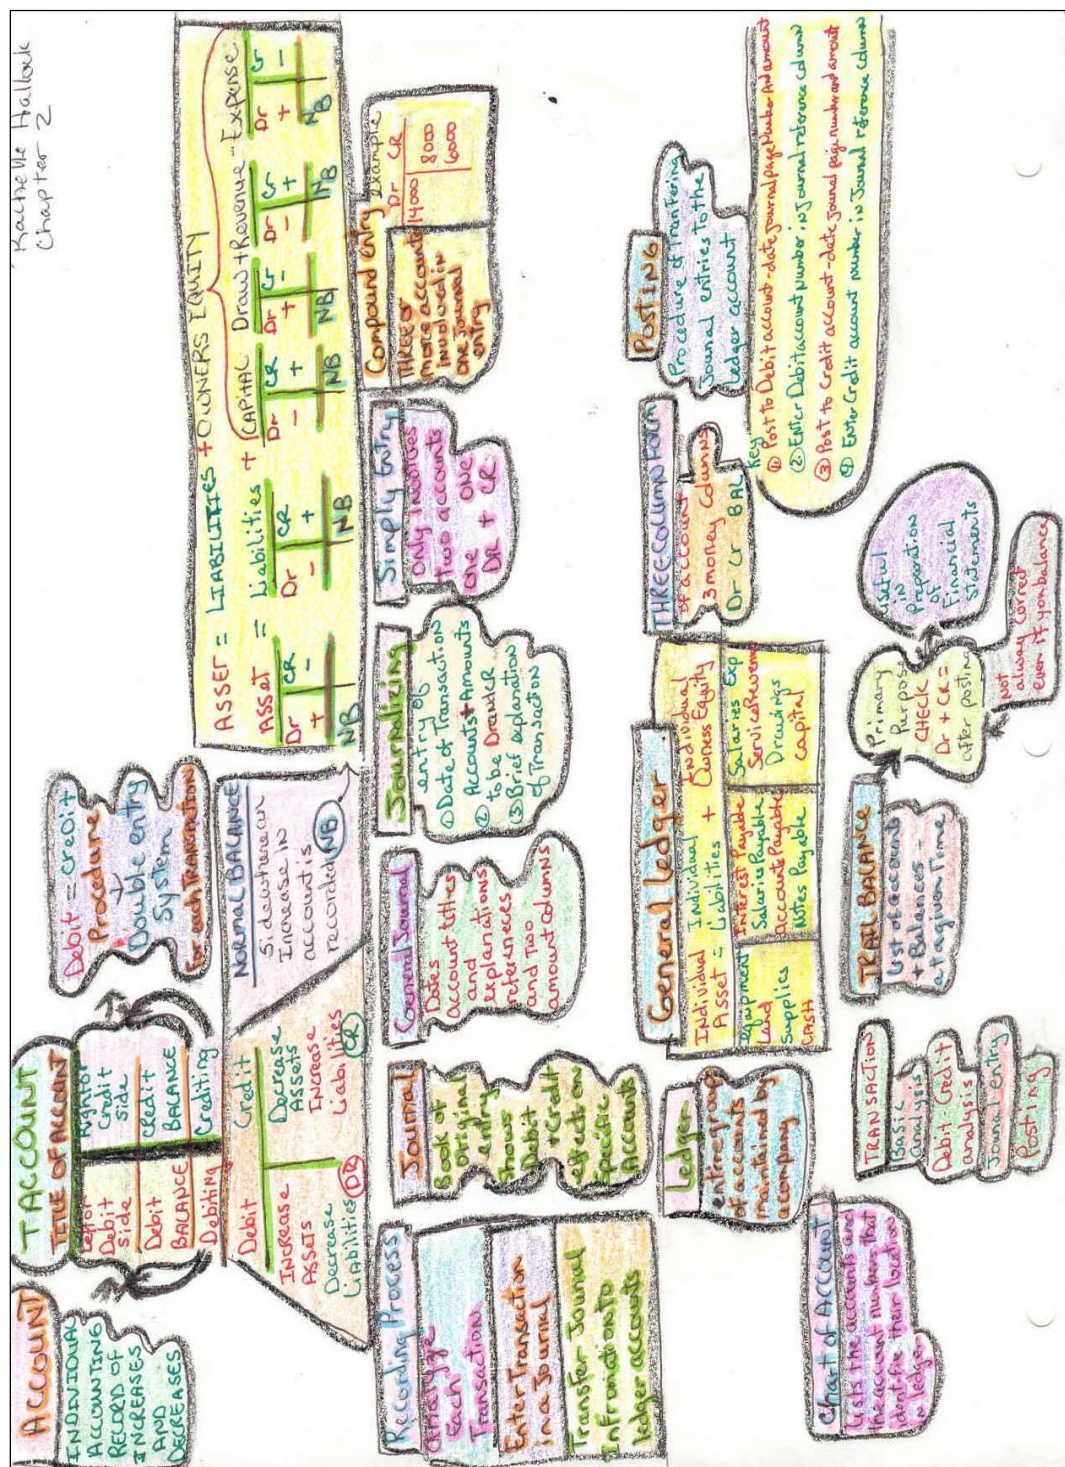 Rachelle Hallock
Chapter 2
ACCOUNT
INDIVIDUAL
ACCOUNTING
RECORD OF
INCREASES
AND
DECREASES
T ACCOUNT
TITLE OF ACCOUNT
Left or
Debit
side
Right or
credit
side
Debit
BALANCE
credit
BALANCE
Debiting
Crediting
Debit = Credit
Procedure
Double entry
System
For each TRANSACTION
Debit
Credit
INCREASE
ASSETS
Decrease
Liabilities
DR
Decrease
ASSETS
INCREASE
Liabilities
CR
NORMAL BALANCE
Side where an
Increase in
account is
recorded NB
ASSET = LIABILITIES + OWNERS EQUITY
ASSET = Liabilities + CAPITAL Draw + Revenue - Expense
Dr CR Dr CR Dr CR Dr Cr Dr Cr Dr Cr
+ - - + - + + - - + + -
NB NB NB NB NB NB
Recording Process
Analyze
Each
Transaction
Enter Transaction
in a Journal
Transfer Journal
Infromation to
ledger accounts
Journal
Book of
original
entry
Shows
Debit
+ Credit
effects on
Specific
Accounts
General Journal
Dates
account titles
and
explanations
refereneces
and Two
amount columns
Journalizing
entry of
① Date of Transaction
② Accounts + Amounts
to be Dr and CR
③ Brief explanation
of Transaction
Simply Entry
only involves
Two accounts
one + one
DR + CR
Compound entry
THREE or
more accounts
involved in
one Journal
entry
example
Dr CR
14000 8000
6000
Ledger
entire group
of accounts
maintained by
a company
General Ledger
Individual Individual Individual
Asset = Liabilities + Owners Equity
Equipment
Land
Supplies
CASH
Interest Payable
Salaries Payable
Accounts Payable
Notes Payable
Salaries Exp
Service Revenue
Drawings
Capital
THREE Column Form
of account
3 money Columns
Dr Cr BAL
Posting
Procedure of Tranfering
Journal entries to the
Ledger account
Key
① Post to Debit account - date journal page Number and amount
② Enter Debit account Number in journal reference column
③ Post to Credit account - date journal page number and amount
④ Enter Credit account number in Journal reference column
Chart of Account
Lists the accounts and
the account numbers that
identifie their location
in ledger
TRANSACTION
Basic
analysis
Debit-Credit
analysis
Journal entry
Posting
TRAIL BALANCE
List of accounts
+ Balances -
at a given Time
Primary
Purpose
CHECK
Dr + Cr =
after posting
useful
in
Preparation
of
Financial
statements
Not
always correct
even if you balance